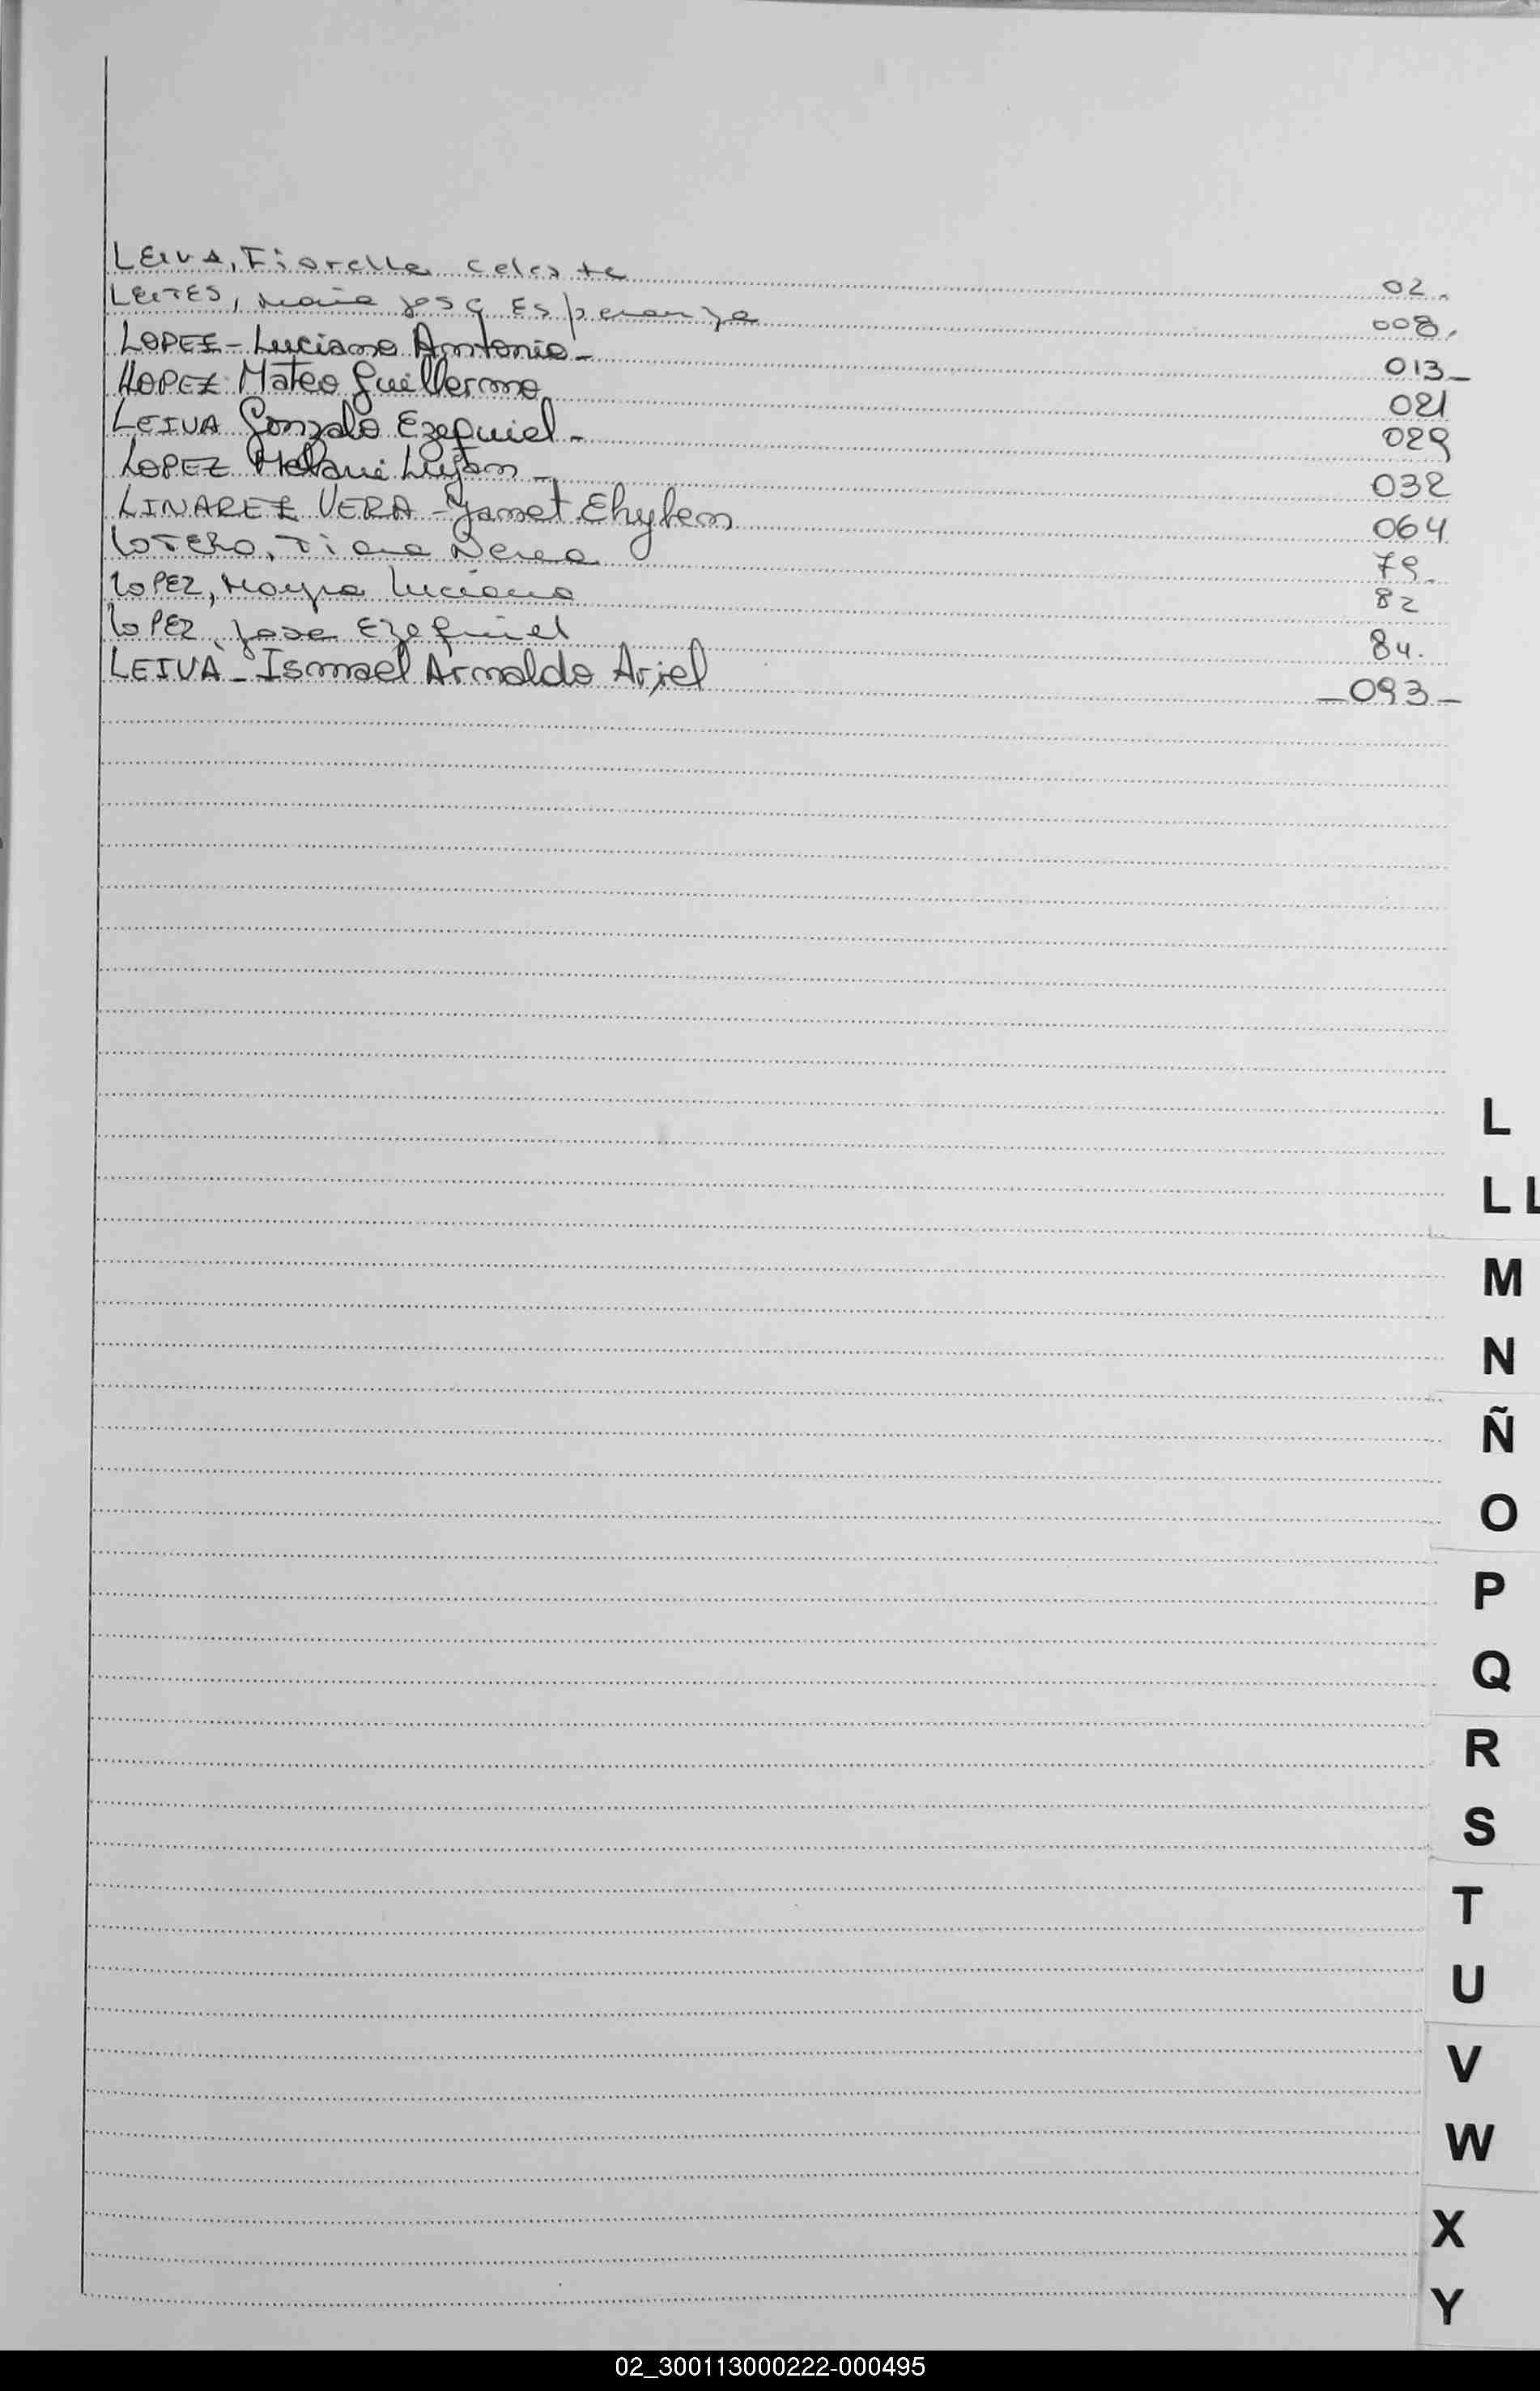 LEIVA, Fiorella Celeste 02.
LEITES, Maria Jose Esperanza 008.
LOPEZ - Luciano Antonio - 013 -
LOPEZ Mateo Guillermo 021
LEIVA Gonzalo Ezequiel - 029
LOPEZ Melani Lujan - 032
LINAREZ VERA - Yamet Ehylem 064
LOTERO, Tiana Nerea 79.
LOPEZ, Mayra Luciana 82
LOPEZ, Jose Ezequiel 84.
LEIVA - Ismael Arnaldo Ariel - 093 -
L
LL
M
N
Ñ
O
P
Q
R
S
T
U
V
W
X
Y
02_300113000222-000495